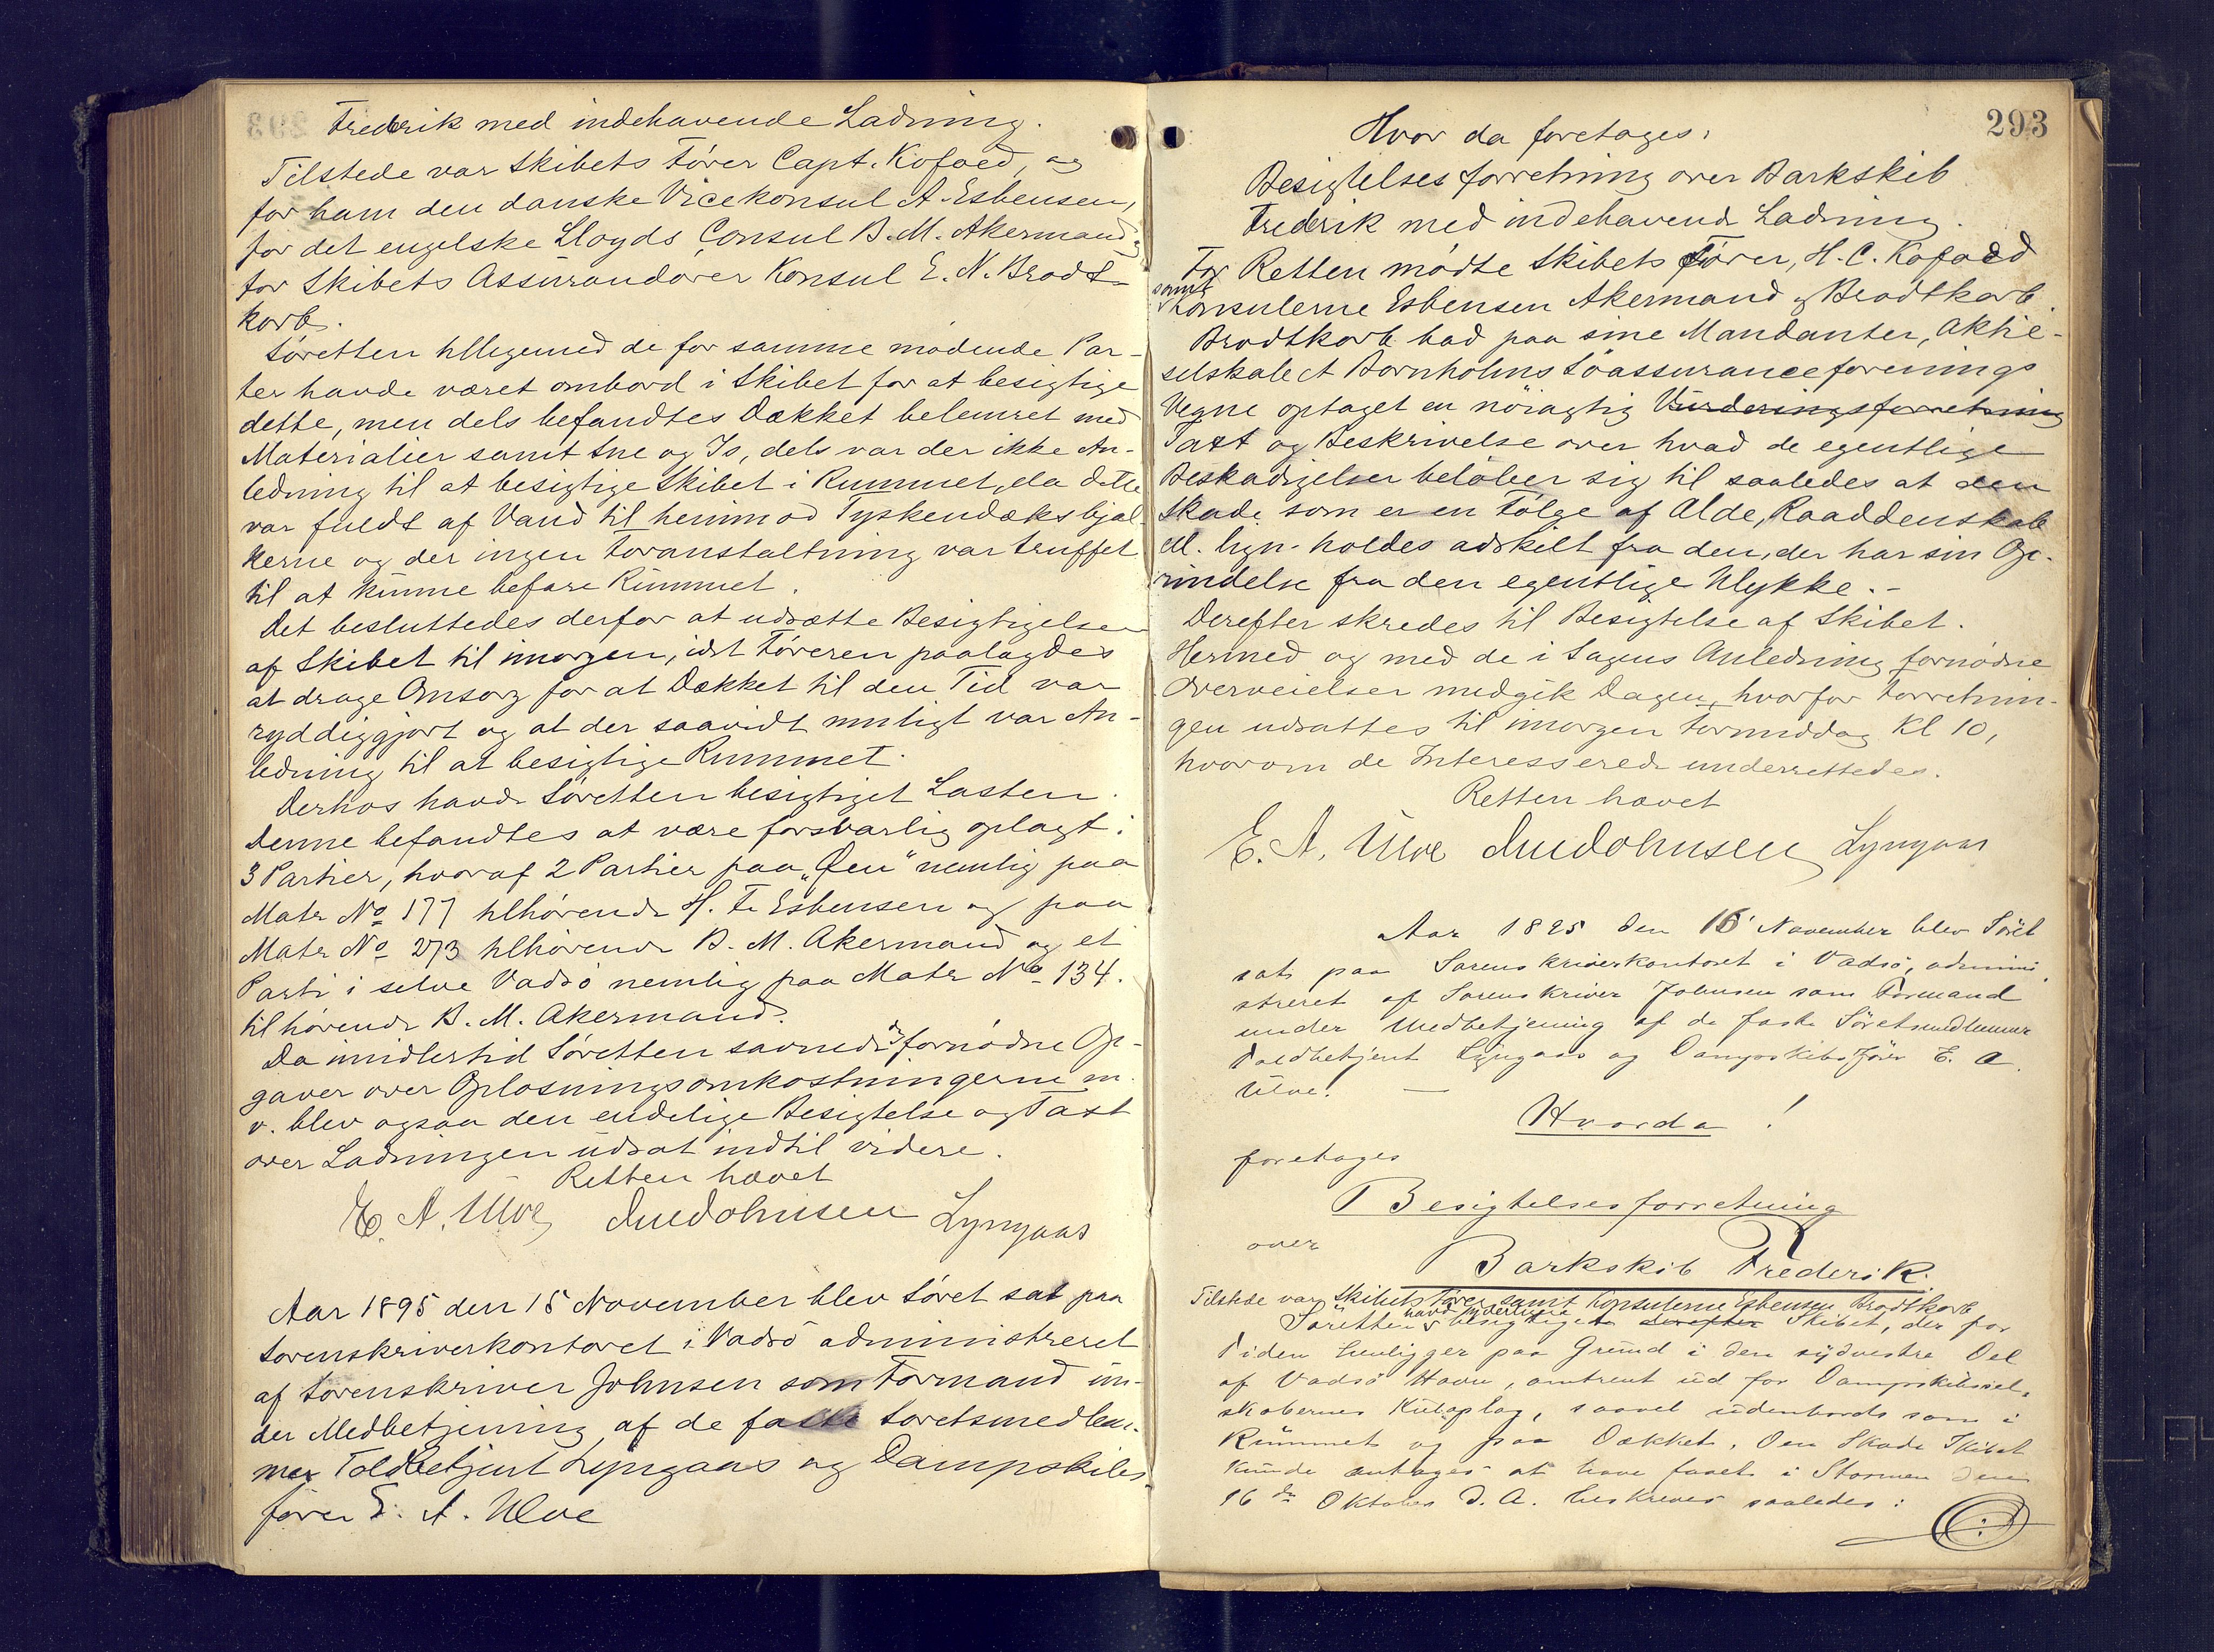 Fredrik med indehavende Ladning.
Tilstede var Skibets Fører Capt. Kofoed, og
for ham den danske Vicekonsul A. Esbensen,
for det engelske Lloyds Consul B. M. Akermand,
for Skibets Assurandører Konsul E. N. Brodt-
korb.
Søretten tilligemed de for samme mødende Par-
ter havde været ombord i Skibet for at besigtige
dette, men dels befandtes Dækket belemret med
Materialier samt Sne og Is, dels var der ikke An-
ledning til at besigtige Skibet i Rummet, da dette
var fuldt af Vand til henimod Tyskendæksbjæl-
kerne og der ingen Foranstaltning var truffet
til at kunne befare Rummet.
Det besluttedes derfor at udsætte Besigtigelsen
af Skibet til imorgen, idet Føreren paalagdes
at drage Omsorg for at Dækket til den Tid var
ryddiggjort og at der saavidt muligt var An-
ledning til at besigtige Rummet.
Derhos havde Søretten besigtiget Lasten.
Denne befandtes at være forsvarlig oplagt i
3 Partier, hvoraf 2 Partier paa „Øen" nemlig paa
Matr No 177 tilhørende H. F. Esbensen og paa
Matr No 273 tilhørende B. M. Akermand og et
Parti i selve Vadsø nemlig paa Matr No 134.
tilhørende B. M. Akermand.
Da imidlertid Søretten savnede de fornødne Op-
gaver over Oplosningsomkostningerne m.
v. blev ogsaa den endelige Besigtelse og Taxt
over Ladningen udsat indtil videre.
Retten hævet
E. A. Ulve Lyngaas
Aar 1895 den 15 November blev Søret sat paa
Sorenskriverkontoret i Vadsø administreret
af Sorenskriver Johnsen som Formand un-
der Medbetjening af de faste Søretsmedlem-
mer Toldbetjent Lyngaas og Dampskibs-
fører E. A. Ulve
293
Hvor da foretages:
Besigtelsesforretning over Barkskib
Fredrik med indehavende Ladning.
For Retten mødte Skibets Fører, H. C. Kofoed
samt Konsulerne Esbensen Akermand og Brodtkorb.
Brodtkorb bad paa sine Mandanter, Aktie-
selskabet Bornholms Søassuranceforenings
Vegne optaget en nøiagtig Vurderingsforretning
Taxt og Beskrivelse over hvad de egentlige
Beskadigelser beløber sig til saaledes at den
Skade som er en Følge af Alde, Raaddenskab
el. lign. holdes adskilt fra den, der har sin Op-
rindelse fra den egentlige Ulykke. -
Derefter skredes til Besigtelse af Skibet.
Hermed og med de i Sagens Anledning fornødne
Overveielser medgik Dagen, hvorfor Forretnin-
gen udsattes til imorgen Formiddag Kl 10,
hvorom de Interesserede underrettedes.
Retten hævet
E. A. Ulve Lyngaas
Aar 1895 den 16 November blev Søret
sat paa Sorenskriverkontoret i Vadsø, admini
streret af Sorenskriver Johnsen som Formand
under Medbetjening af de faste Søretsmedlemmer
Toldbetjent Lyngaas og Dampskibsfører E. A.
Ulve. —
Hvorda !
foretages
Besigtelsesforretning
over
Barkskib Frederik.
Tilstede var Skibets Fører samt Konsulerne Esbensen Brodtkorb
Søretten havde besigtiget derefter Skibet, der for
Tiden henligger paa Grund i den sydvestre Del
af Vadsø Havn, omtrent ud for Dampskibssel-
skabernes Kuloplag, saavel udenbords som i
Rummet og paa Dækket. Den Skade Skibet
kunde antages at have faaet i Stormen den
16de Oktober d. A. beskreves saaledes: